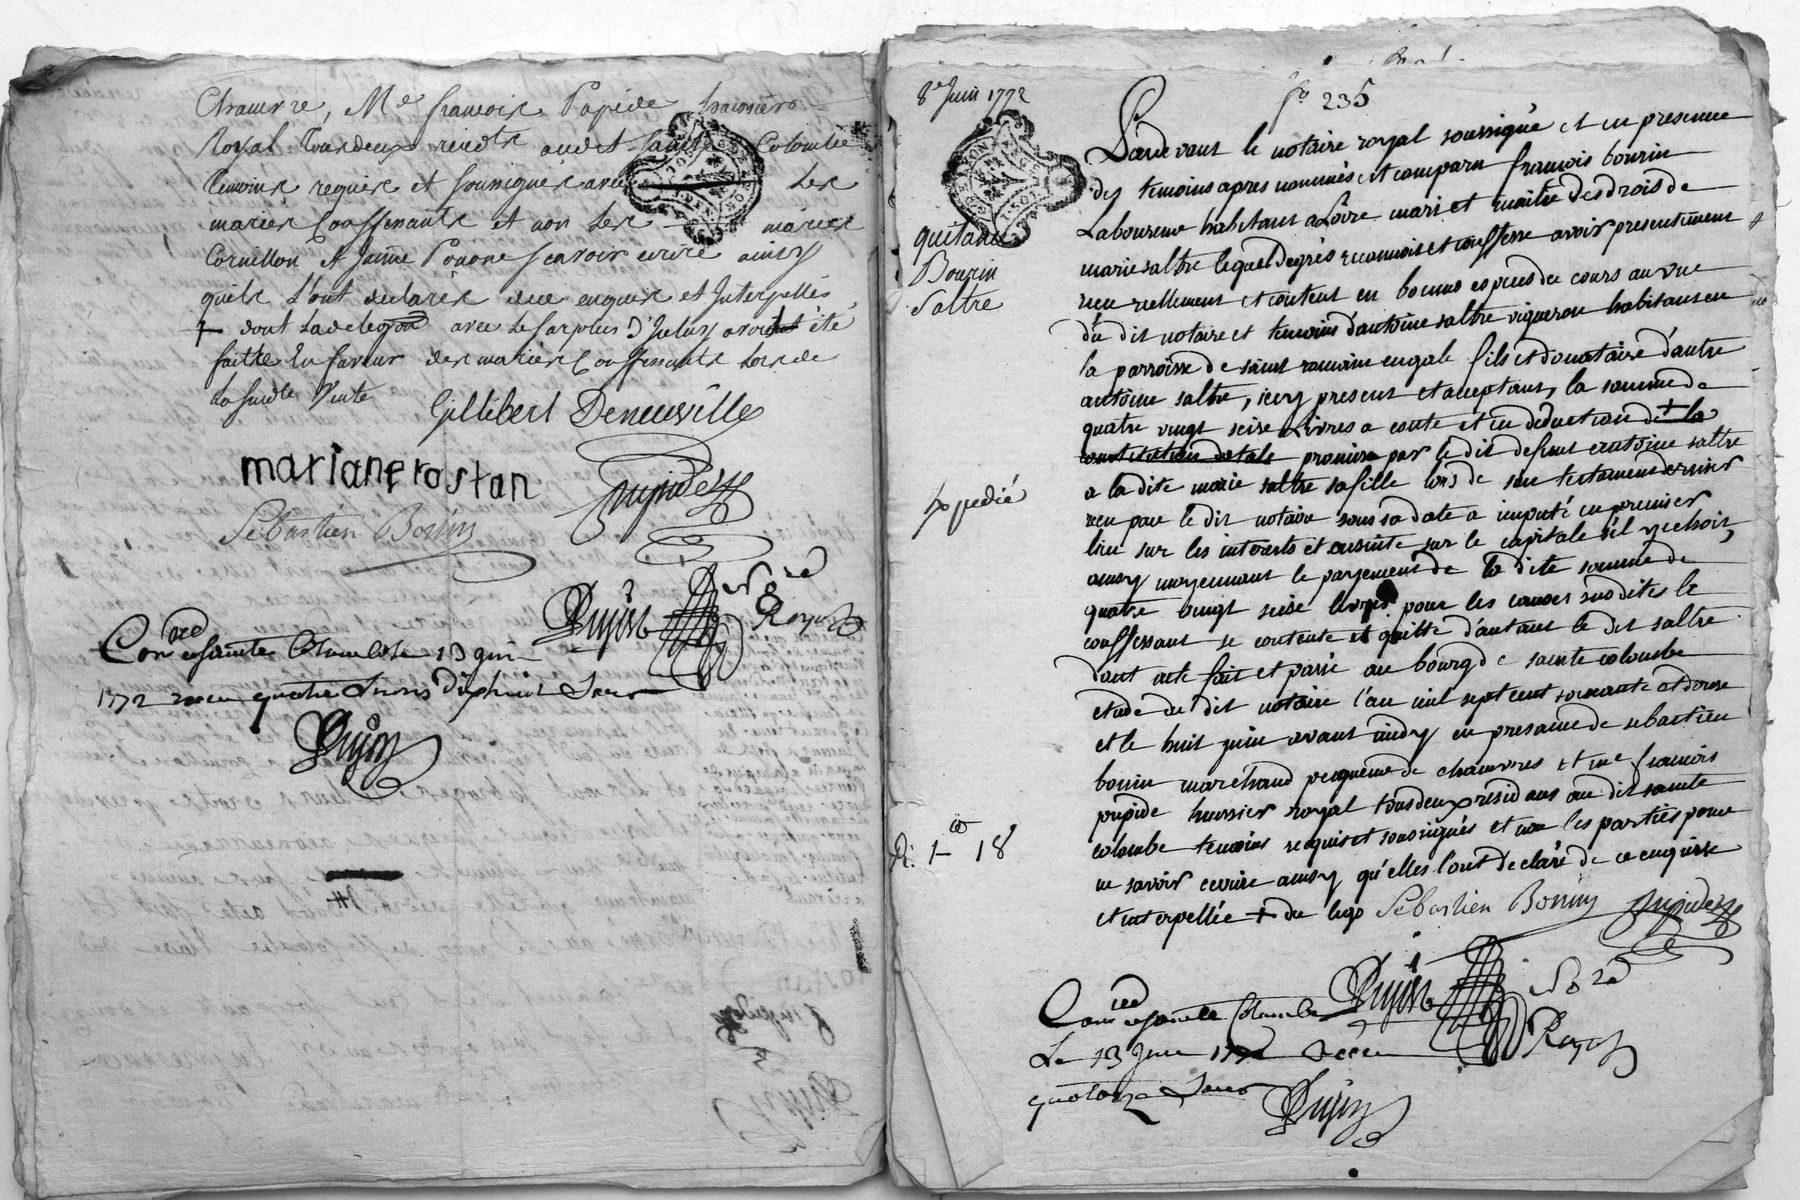 Chanvre, Me francois Pupide huissier
Royal tous deux residts audt sainte Colombe
temoins requis et soussignes avec les
mariés Confessants et non les mariés
Cornillon et Jeanne Ponone scavoir ecrire ainsy
quils l'ont declarés de ce enquis et Interpellés
+ dont la delegaon avec le surplus d'Iceluy avoit été
faitte En faveur des mariés Confessants lors de
la susdte Vente
Gillibert Deneuville
marianne rostan
Sébastien Bonin
Pupide
Dujast No re
Royal
Con lée a sainte Colombe le 13 juin
1772 recu quatre livres dix huit sous
Dujast
8e Juin 1772
fo 235
quitance
Bourin
Saltre
Expedié
Pardevant le notaire royal soussigné et en presence
des temoins apres nommés est comparu francois bourin
Laboureur habitant a Loire mari et maitre des drois de
marie saltre lequel de gré reconnoit et confesse avoir presentement
recu reellement et content en bonnes especes de cours au vue
du dit notaire et temoins d'antoine saltre vigneron habitant en
la parroisse de saint romain en gale fils et donataire d'autre
antoine saltre, icy present et acceptant, la somme de
quatre vingt seise Livres a conte et en deduction de + la
constitution dotale promise par le dit defunt antoine saltre
a la dite marie saltre sa fille lors de son testament dernier
recu par le dit notaire sous sa date a imputé en premier
lieu sur les interets et ensuite sur le capitale s'il y echoit,
ainsy moyennant le payement de la dite somme de
quatre vingt seise livres pour les causes susdites le
confessant se contente et quitte d'autant le dit saltre
dont acte fait et passé au bourg de sainte colombe
etude du dit notaire l'an mil sept cent soixante et douse
et le huit juin avant midy en presance de sebastien
bonin marchand peigneur de chanvres et me francois
pupide huissier royal tous deux résidans au dit sainte
colombe temoins requis et soussignés et non les parties pour
ne savoir ecrire ainsy qu'elles l'ont declaré de ce enquise
et interpellée + du legs Sébastien Bonin Pupide
R. 1 18
Dujast No re
Royal
Con lée a sainte Colombe
Le 13 Juin 1772 Recu
quatorze sous
Dujast